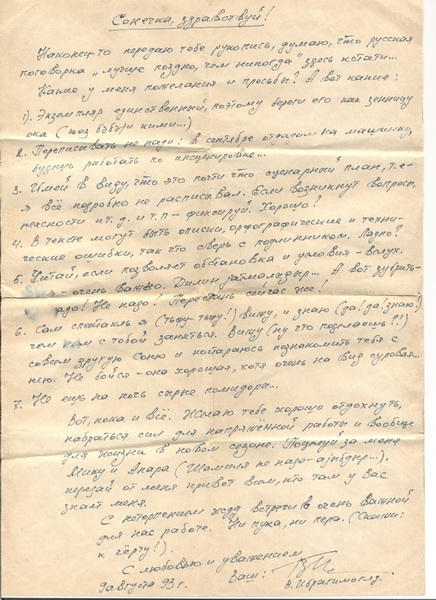 Сонечка, здравствуй!
Наконец-то передаю тебе рукопись, думаю, что русская
поговорка „лучше поздно, чем никогда" здесь кстати...
Какие у меня пожелания и просьбы? А вот какие:
1). Экземпляр единственный, поэтому береги его как зеницу
ока (
2. Переписывать не надо: в сентябре отдадим на машинку,
будешь работать по
3. Имей в виду, что это почти что сценарный план, т.е-
я всё подробно не расписывал. Если возникнут вопросы,
неясности и т.д. и т.п - фиксируй. Хорошо?
4. В тексте могут быть описки, орфографические и техни-
ческие ошибки, так что сверь с подлинником. Ладно?
5. Читай, если позволяет обстановка и условия - вслух.
очень важно. А вот зубрить-
надо! Не надо! Перестань сейчас же!
6. Сам спектакль я (тьфу-тьфу!) вижу, и знаю (да! да! знаю!)
чем нам с тобой заняться. Вижу (ну что поделаешь?!)
совсем другую Соню и постараюсь познакомить тебя с
нею. Не бойся - она хорошая, хотя очень на вид суровая...
7. Не ешь на ночь сырые помидоры...
Вот, пока и всё. Желаю тебе хорошо отдохнуть,
набраться сил для напряжённой работы и вообще
для жизни в новом сезоне. Поцелуй за меня
Мику и Анара (Шамиля не надо-
передай от меня привет всем, кто там у вас
знает меня.
С нетерпением жду встречи в очень важной
для нас работе. Ни пуха, ни пера. (Скажи:
к чёрту!).
С любовью и уважением
9 августа 93 г. Ваш: В. Ибрагимоглу.